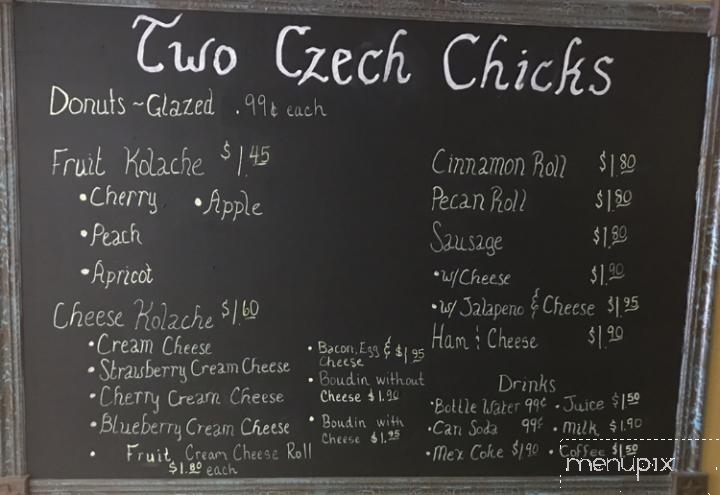 Two Czech Chicks
Donuts ~ Glazed .99¢ each
Fruit Kolache $1.45
• Cherry • Apple
• Peach
• Apricot
Cheese Kolache $1.60
• Cream Cheese
• Strawberry Cream Cheese
• Cherry Cream Cheese
• Blueberry Cream Cheese
• Fruit Cream Cheese Roll
$1.80 each
• Bacon, Egg & $1.95
Cheese
• Boudin without
Cheese $1.90
• Boudin with
Cheese $1.95
Cinnamon Roll $1.80
Pecan Roll $1.80
Sausage $1.80
• w/Cheese $1.90
• w/ Jalapeno & Cheese $1.95
Ham & Cheese $1.90
Drinks
• Bottle Water 99¢ • Juice $1.50
• Can Soda 99¢ • Milk $1.90
• Mex Coke $1.90 • Coffee $1.50
menupix